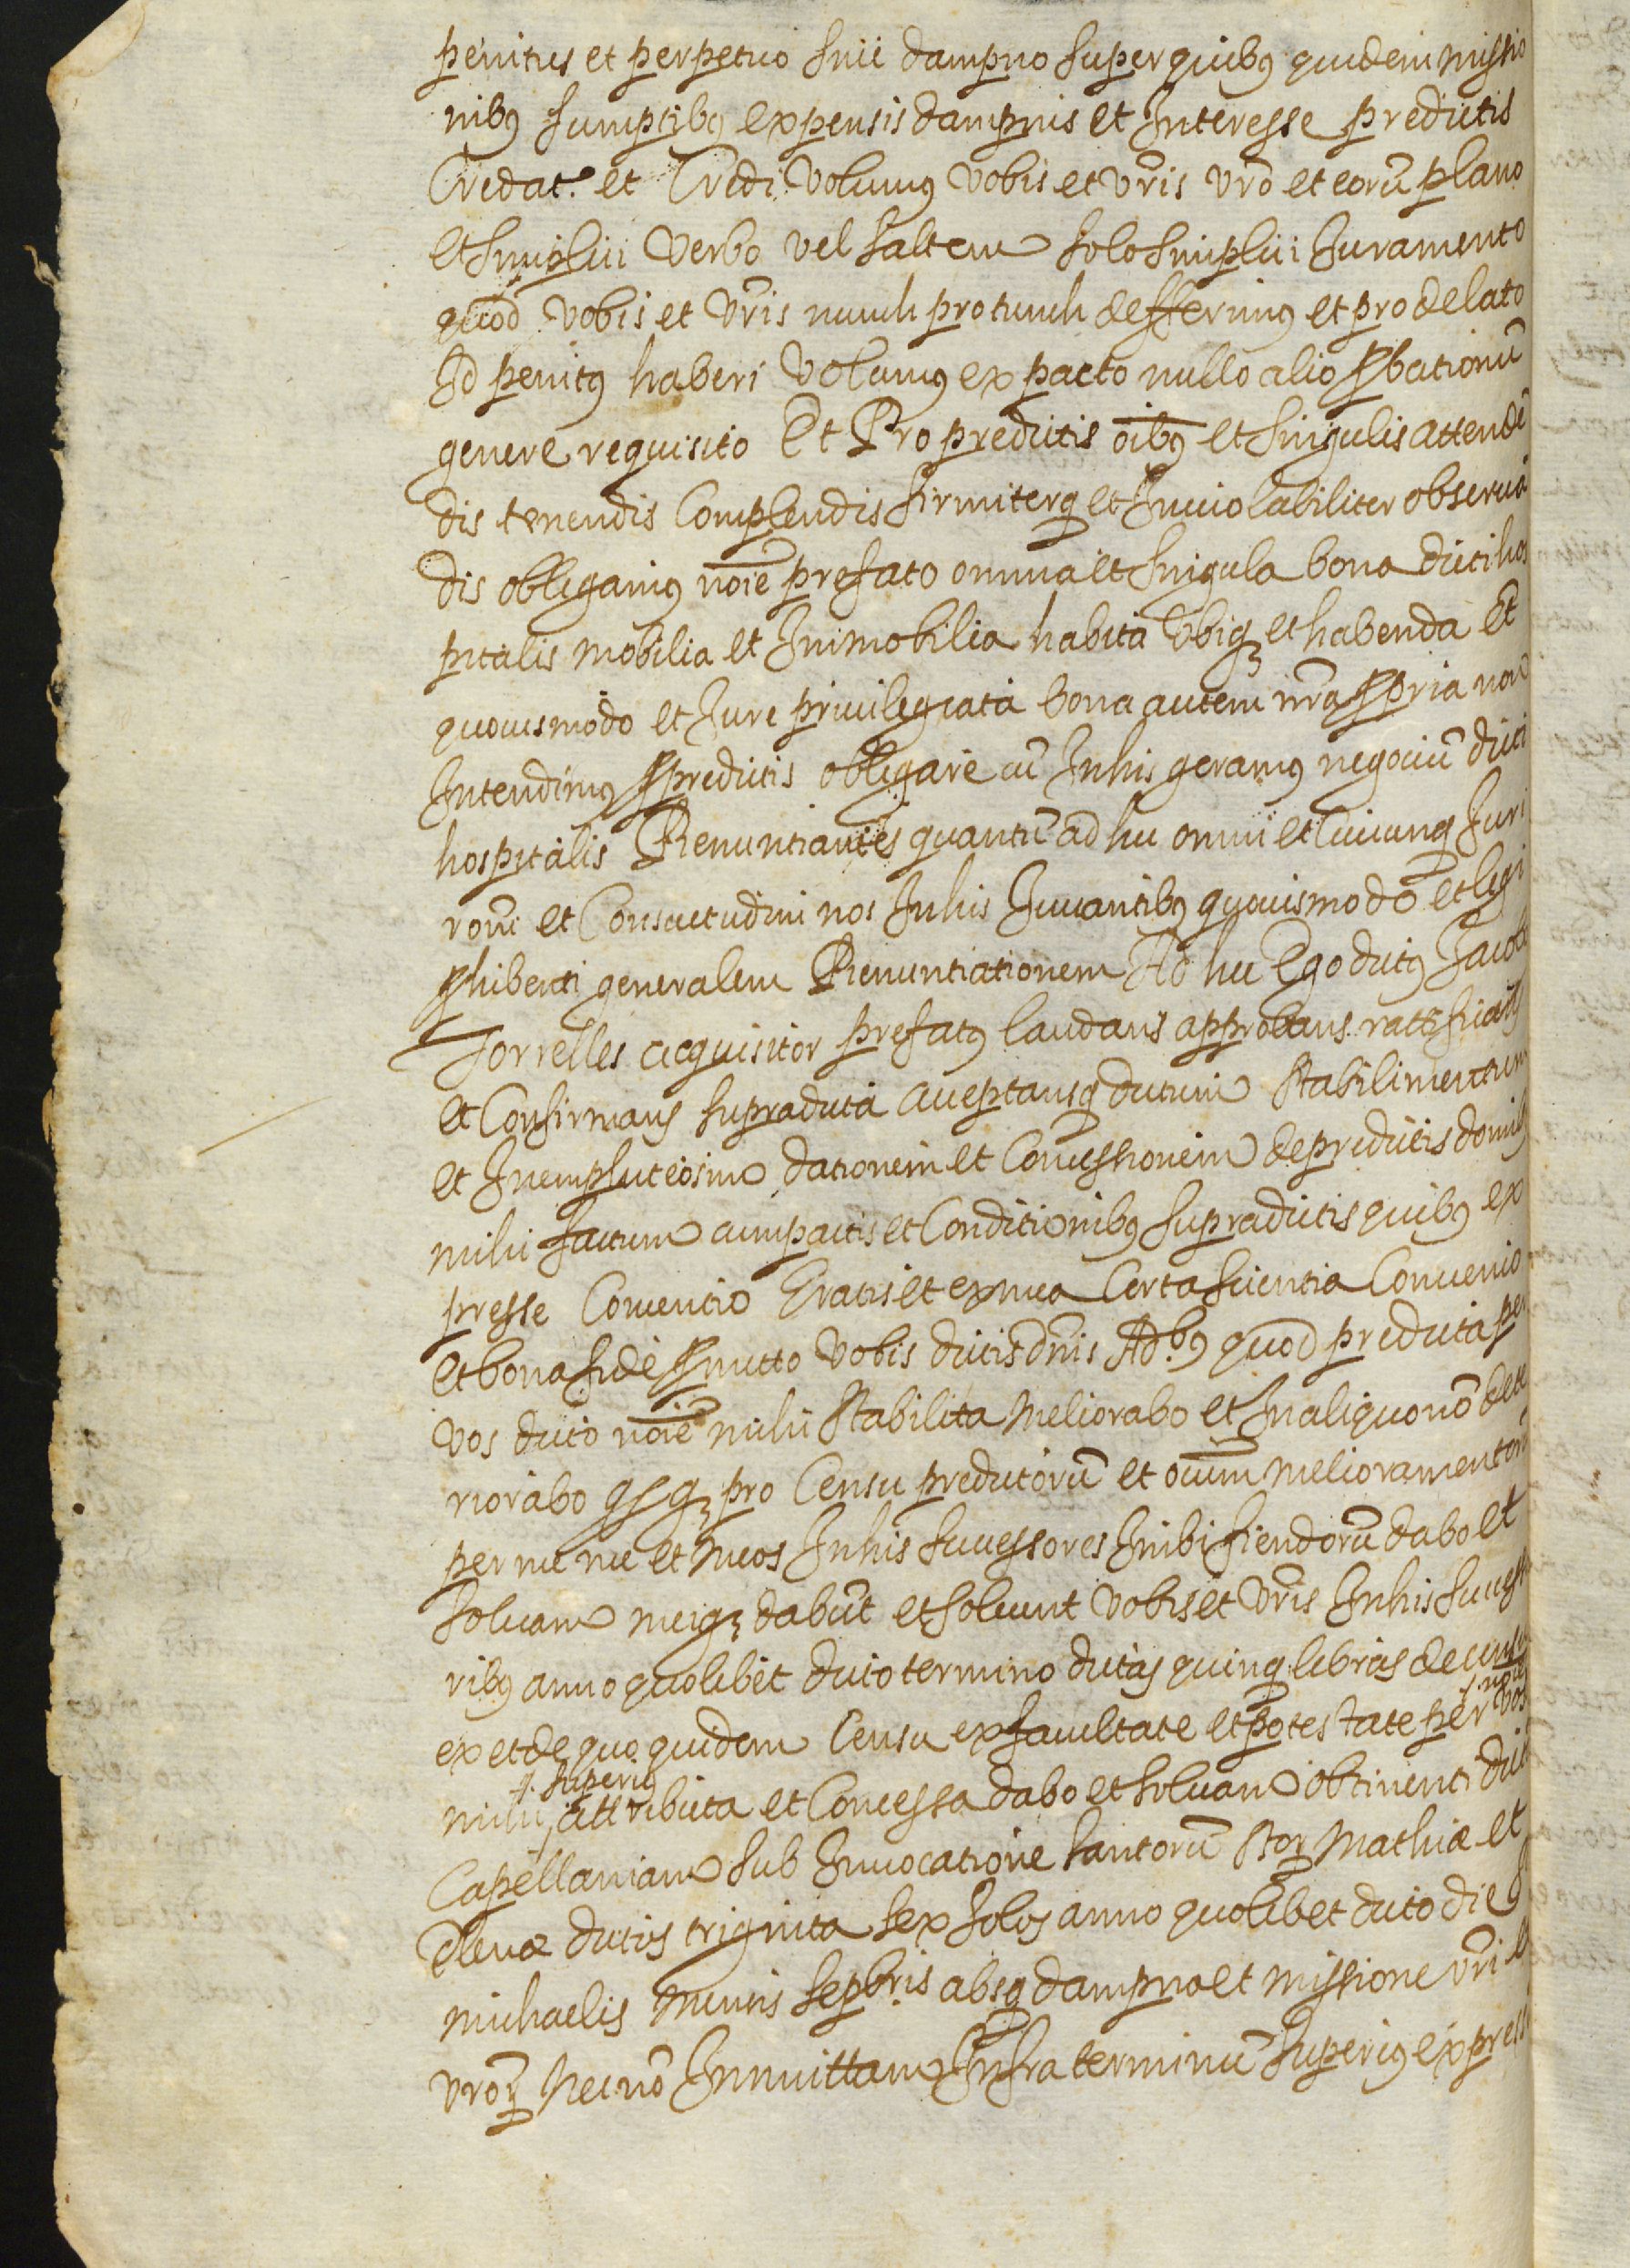 penitus et perpetuo sine dampno super quibus quidem missio
nibus sumptibus expensis dampnis et Interesse predictis
Credat.r et Credi volumus vobis et vr̃is vr̃o et eorũ plano
et simplici verbo vel saltem solo simplici Juramento
quod vobis et vr̃is nunch pro tunch defferimus et pro delato
Id penitus haberi volumus ex pacto nullo alio ꝓbationũ
genere requisito Et Pro predictis oĩbus et singulis attendẽ
dis tenendis Complendis firmiterq et Inviolabiliter observã
dis obligamus noĩe prefato omnia et singula bona dicti hos
pitalis mobilia et Immobilia habita ubiq et habenda Et
quovismodo et Jure privilegiata bona autem nr̃a ꝓpria non
Intendimus ꝓ predictis obligare cũ In his geramus negociũ dicti
hospitalis Renuntiantes quantũ ad hec omni et Cuicunq Juri
roni et Consuetudini nos In his Juvantibus quovismodo et legi
ꝓhibenti generalem Renuntiationem Ad hec Ego dictus Jacobus
Torrelles acquisitor prefatus laudans approbans rattificans
et Confirmans supradicta acceptansq dictum stabilimentum
et In emphiteosim dationem et Concessionem de predictis domibus
mihi factum cum pactis et Conditionibus supradictis quibus ex
presse Consentio Gratis et ex mea Certa scientia Convenio
et bona fide ꝓmitto vobis dictis dñis Ad.bus quod predicta per
vos dicto noĩe mihi stabilita meliorabo et In aliquo nõ dete
riorabo qꝫ pro Censu predictorũ et oĩum melioramentorũ
per me et meos In his successores Inibi fiendorũ dabo et
solvam meiqꝫ dabũt et solvent vobis et vr̃is In his successo
ribus anno quolibet dicto termino dictas quinq libras de censu
ex et de quo quidem Censu ex facultate et potestate per vos
/ noĩe
/. superius
mihi / attributa et Concessa dabo et solvam obtinenti dictã
Capellaniam sub Invocatione santorũ stor Mathiæ et
Elenæ dictos triginta sex solos anno quolibet dicto die S
michaelis mensis sepbris absq dampno et missione vr̃i et
vr̃or Necnõ Inmittam Infra terminũ superius express